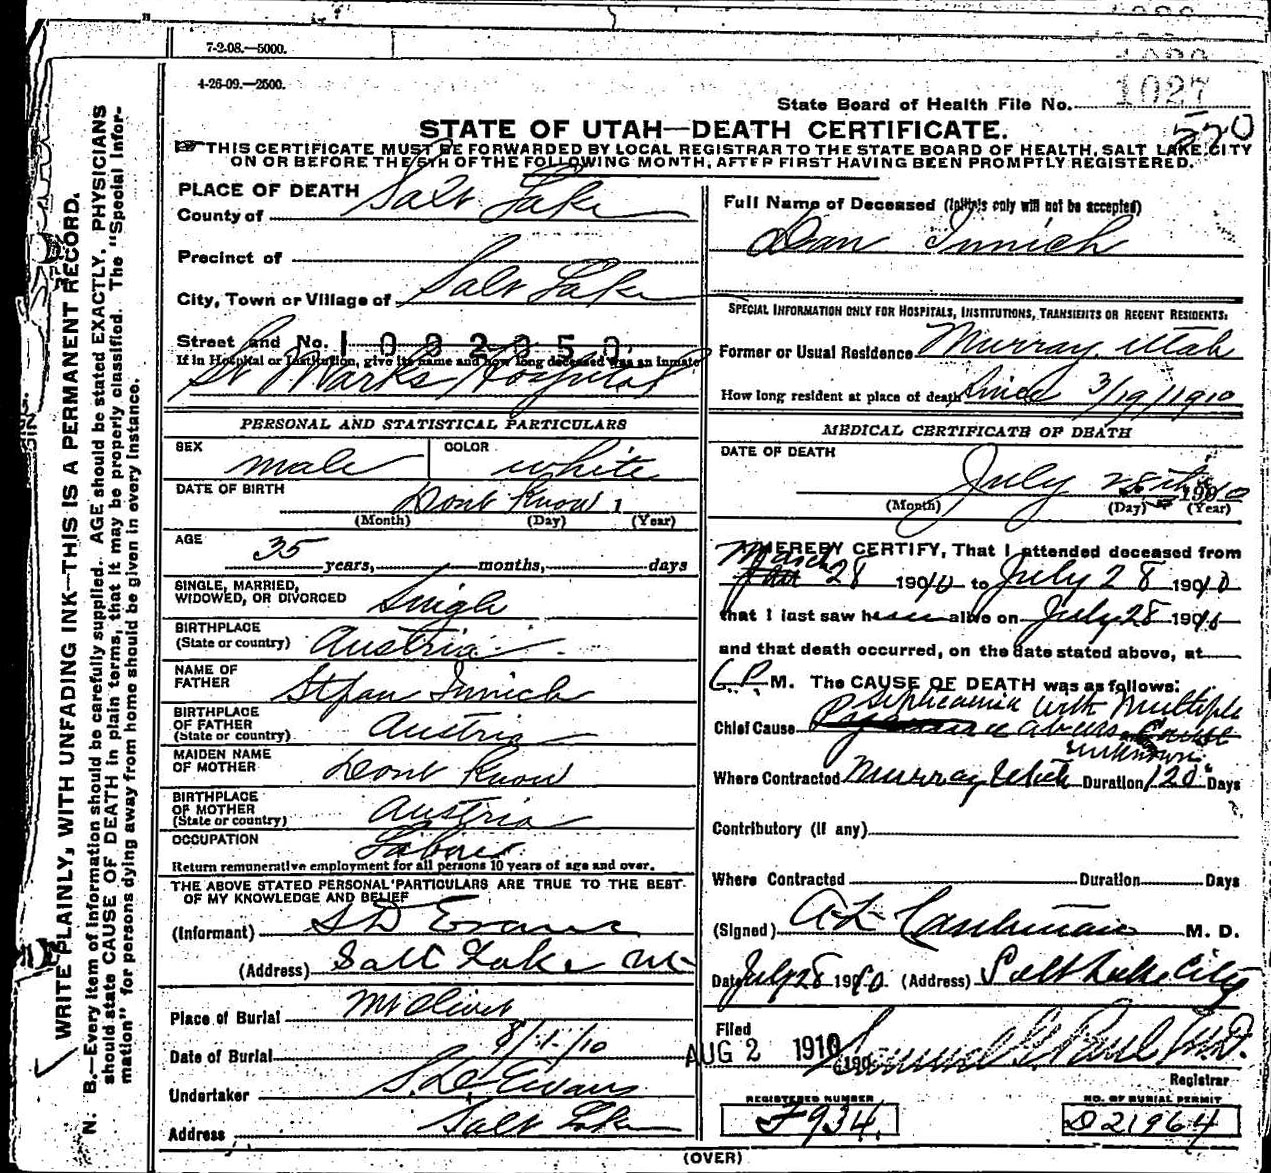 7-2-08.—5000.
4-26-09.—2500.
1027
State Board of Health File No.
550
STATE OF UTAH—DEATH CERTIFICATE.
THIS CERTIFICATE MUST BE FORWARDED BY LOCAL REGISTRAR TO THE STATE BOARD OF HEALTH, SALT LAKE CITY
ON OR BEFORE THE 5TH OF THE FOLLOWING MONTH, AFTER FIRST HAVING BEEN PROMPTLY REGISTERED.
WRITE PLAINLY, WITH UNFADING INK—THIS IS A PERMANENT RECORD.
N. B.—Every item of information should be carefully supplied. AGE should be stated EXACTLY. PHYSICIANS
should state CAUSE OF DEATH in plain terms, that it may be properly classified. The "Special Infor-
mation" for persons dying away from home should be given in every instance.
PLACE OF DEATH
County of Salt Lake
Precinct of
City, Town or Village of Salt Lake
Street and No. 1002050
If in Hospital or Institution, give its name and how long deceased was an inmate
St Marks Hospital
PERSONAL AND STATISTICAL PARTICULARS
SEX male COLOR white
DATE OF BIRTH Dont Know 1
(Month) (Day) (Year)
AGE 35 years, months, days
SINGLE, MARRIED,
WIDOWED, OR DIVORCED Single
BIRTHPLACE
(State or country) Austria
NAME OF
FATHER Stpan Innich
BIRTHPLACE
OF FATHER
(State or country) Austria
MAIDEN NAME
OF MOTHER Dont Know
BIRTHPLACE
OF MOTHER
(State or country) Austria
OCCUPATION Laborer
Return remunerative employment for all persons 10 years of age and over.
THE ABOVE STATED PERSONAL PARTICULARS ARE TRUE TO THE BEST
OF MY KNOWLEDGE AND BELIEF
(Informant) S D Evans
(Address) Salt Lake
Place of Burial Mt Olivet
Date of Burial 8/1/10
Undertaker S. D. Evans
Address Salt Lake
Full Name of Deceased (Initials only will not be accepted)
Dan Innich
SPECIAL INFORMATION ONLY FOR HOSPITALS, INSTITUTIONS, TRANSIENTS OR RECENT RESIDENTS:
Former or Usual Residence Murray Utah
How long resident at place of death Since 3/19/1910
MEDICAL CERTIFICATE OF DEATH
DATE OF DEATH
July 28th 1910
(Month) (Day) (Year)
I HEREBY CERTIFY, That I attended deceased from
March 28 1910 to July 28 1910
that I last saw h alive on July 28 1910
and that death occurred, on the date stated above, at
6 P. M. The CAUSE OF DEATH was as follows:
Septicaemia with Multiple
Chief Cause abcess Cause
unknown
Where Contracted Murray Utah Duration 120 Days
Contributory (if any)
Where Contracted Duration Days
(Signed) A L Castleman M. D.
Date July 28 1910. (Address) Salt Lake City
Filed
AUG 2 1910 190 Samuel G. Paul M.D.
Registrar
REGISTERED NUMBER
F934.
NO. OF BURIAL PERMIT
D21964
(OVER)